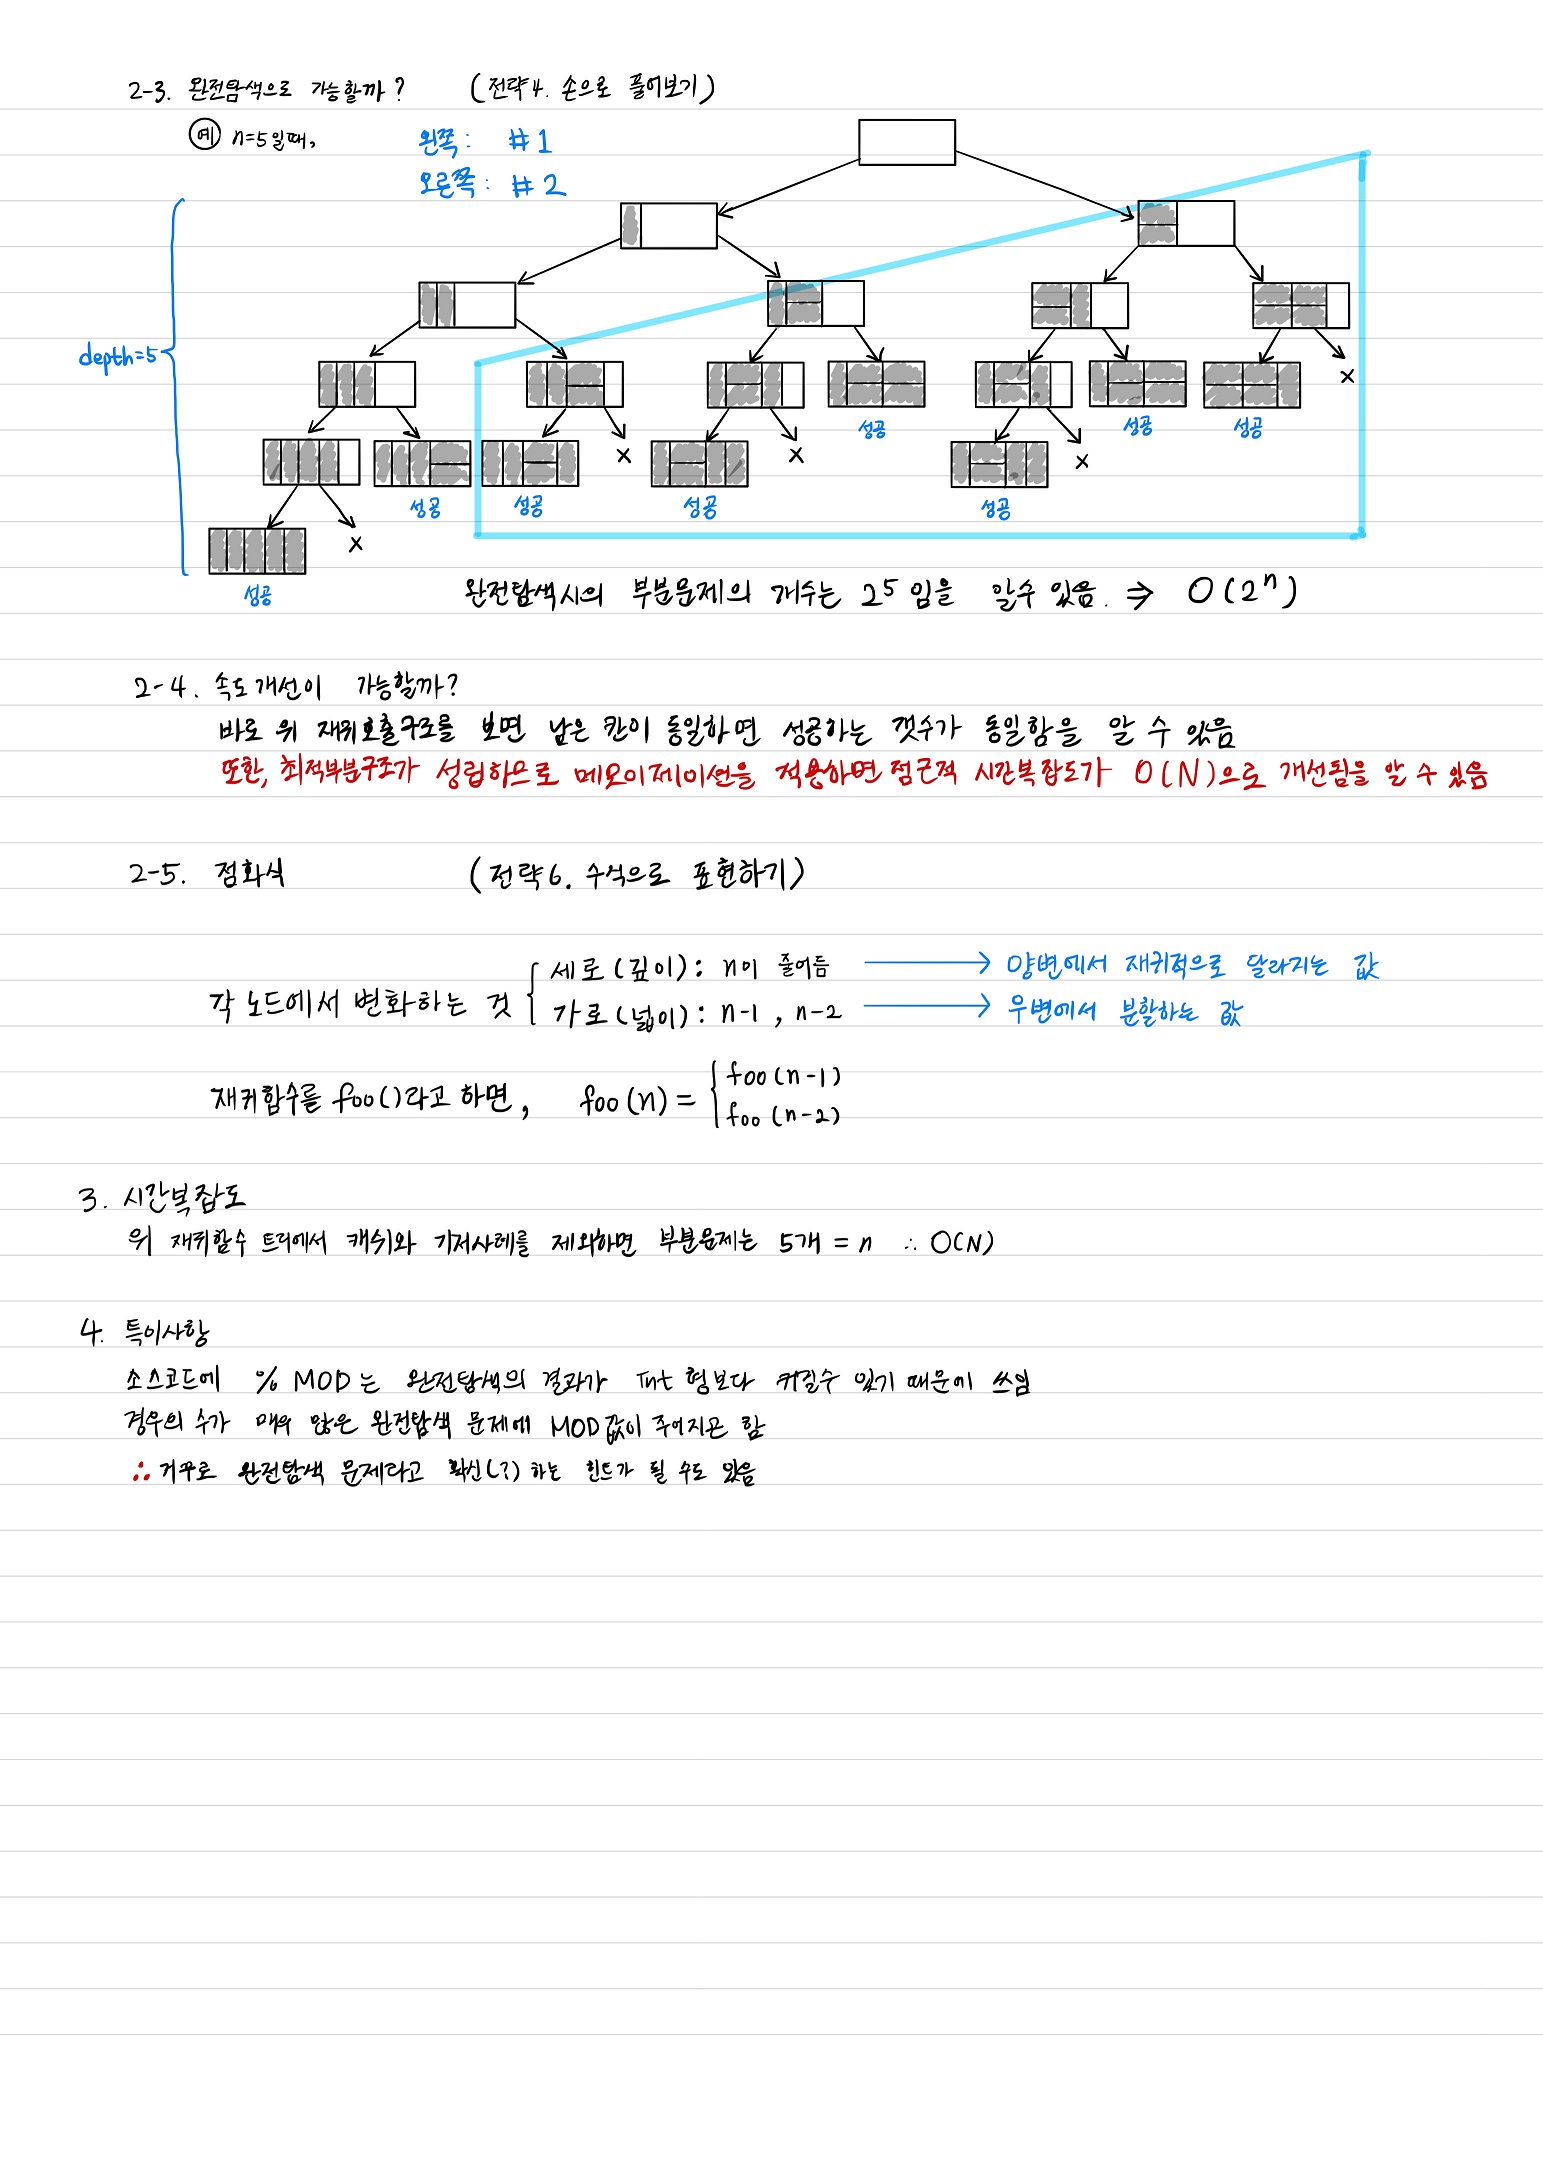 2-3. 완전탐색으로 가능할까? (전략4. 손으로 풀어보기)
예 n=5일때,
왼쪽: #1
오른쪽: #2
depth=5
x
성공
성공
성공
x
x
성공
x
성공
x
성공
성공
성공
x
성공
완전탐색시의 부분문제의 개수는 2^5 임을 알수 있음. ⇒ O(2^n)
2-4. 속도개선이 가능할까?
바로 위 재귀호출구조를 보면 남은 칸이 동일하면 성공하는 갯수가 동일함을 알 수 있음
또한, 최적부분구조가 성립하므로 메모이제이션을 적용하면 점근적 시간복잡도가 O(N)으로 개선됨을 알 수 있음
2-5. 점화식 (전략6. 수식으로 표현하기)
각 노드에서 변화하는 것
세로(깊이): n이 줄어듬 → 양변에서 재귀적으로 달라지는 값
가로(넓이): n-1, n-2 → 우변에서 분할하는 값
재귀함수를 foo()라고 하면, foo(n) = { foo(n-1)
foo(n-2)
3. 시간복잡도
위 재귀함수 트리에서 캐쉬와 기저사례를 제외하면 부분문제는 5개 = n ∴ O(N)
4. 특이사항
소스코드에 % MOD는 완전탐색의 결과가 Int 형보다 커질수 있기 때문에 쓰임
경우의 수가 매우 많은 완전탐색 문제에 MOD값이 주어지곤 함
∴ 거꾸로 완전탐색 문제라고 확신(?)하는 힌트가 될 수도 있음